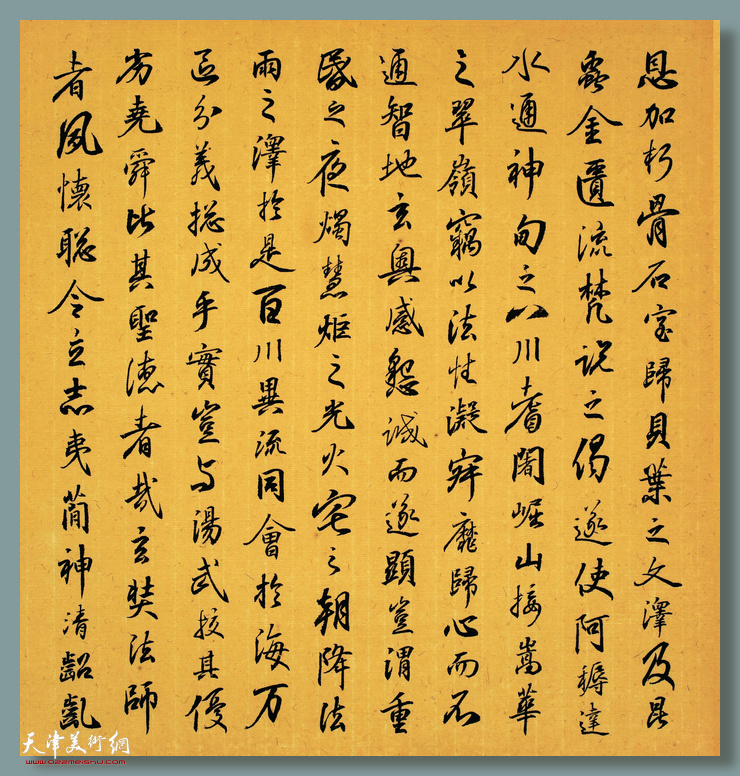 恩加朽骨石室歸貝葉之文澤及昆
蟲金匱流梵說之偈遂使阿耨達
水通神甸之八川耆闍崛山接嵩華
之翠嶺竊以法性凝寂靡歸心而不
通智地玄奧感懇誠而遂顯豈謂重
昏之夜燭慧炬之光火宅之朝降法
雨之澤於是百川異流同會於海万
區分義捴成乎實豈与湯武挍其優
劣堯舜比其聖德者哉玄奘法師
者夙懷聡令立志夷簡神清齠齔
天津美術網
www.022meishu.com